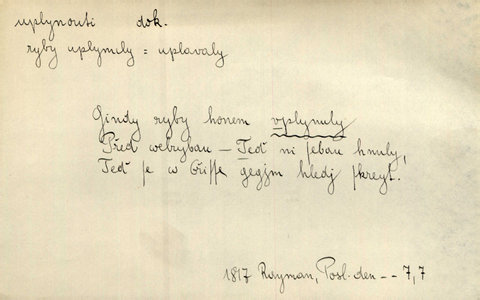 uplynouti dok.
ryby uplynuly = uplavaly
Gindy ryby honem vplynuly
Před welrybau – Teď ni sebau hnuly,
Teď se w Griffe gegjm hledj skreyt.
1817 Rayman, Posl. den -- 7,7